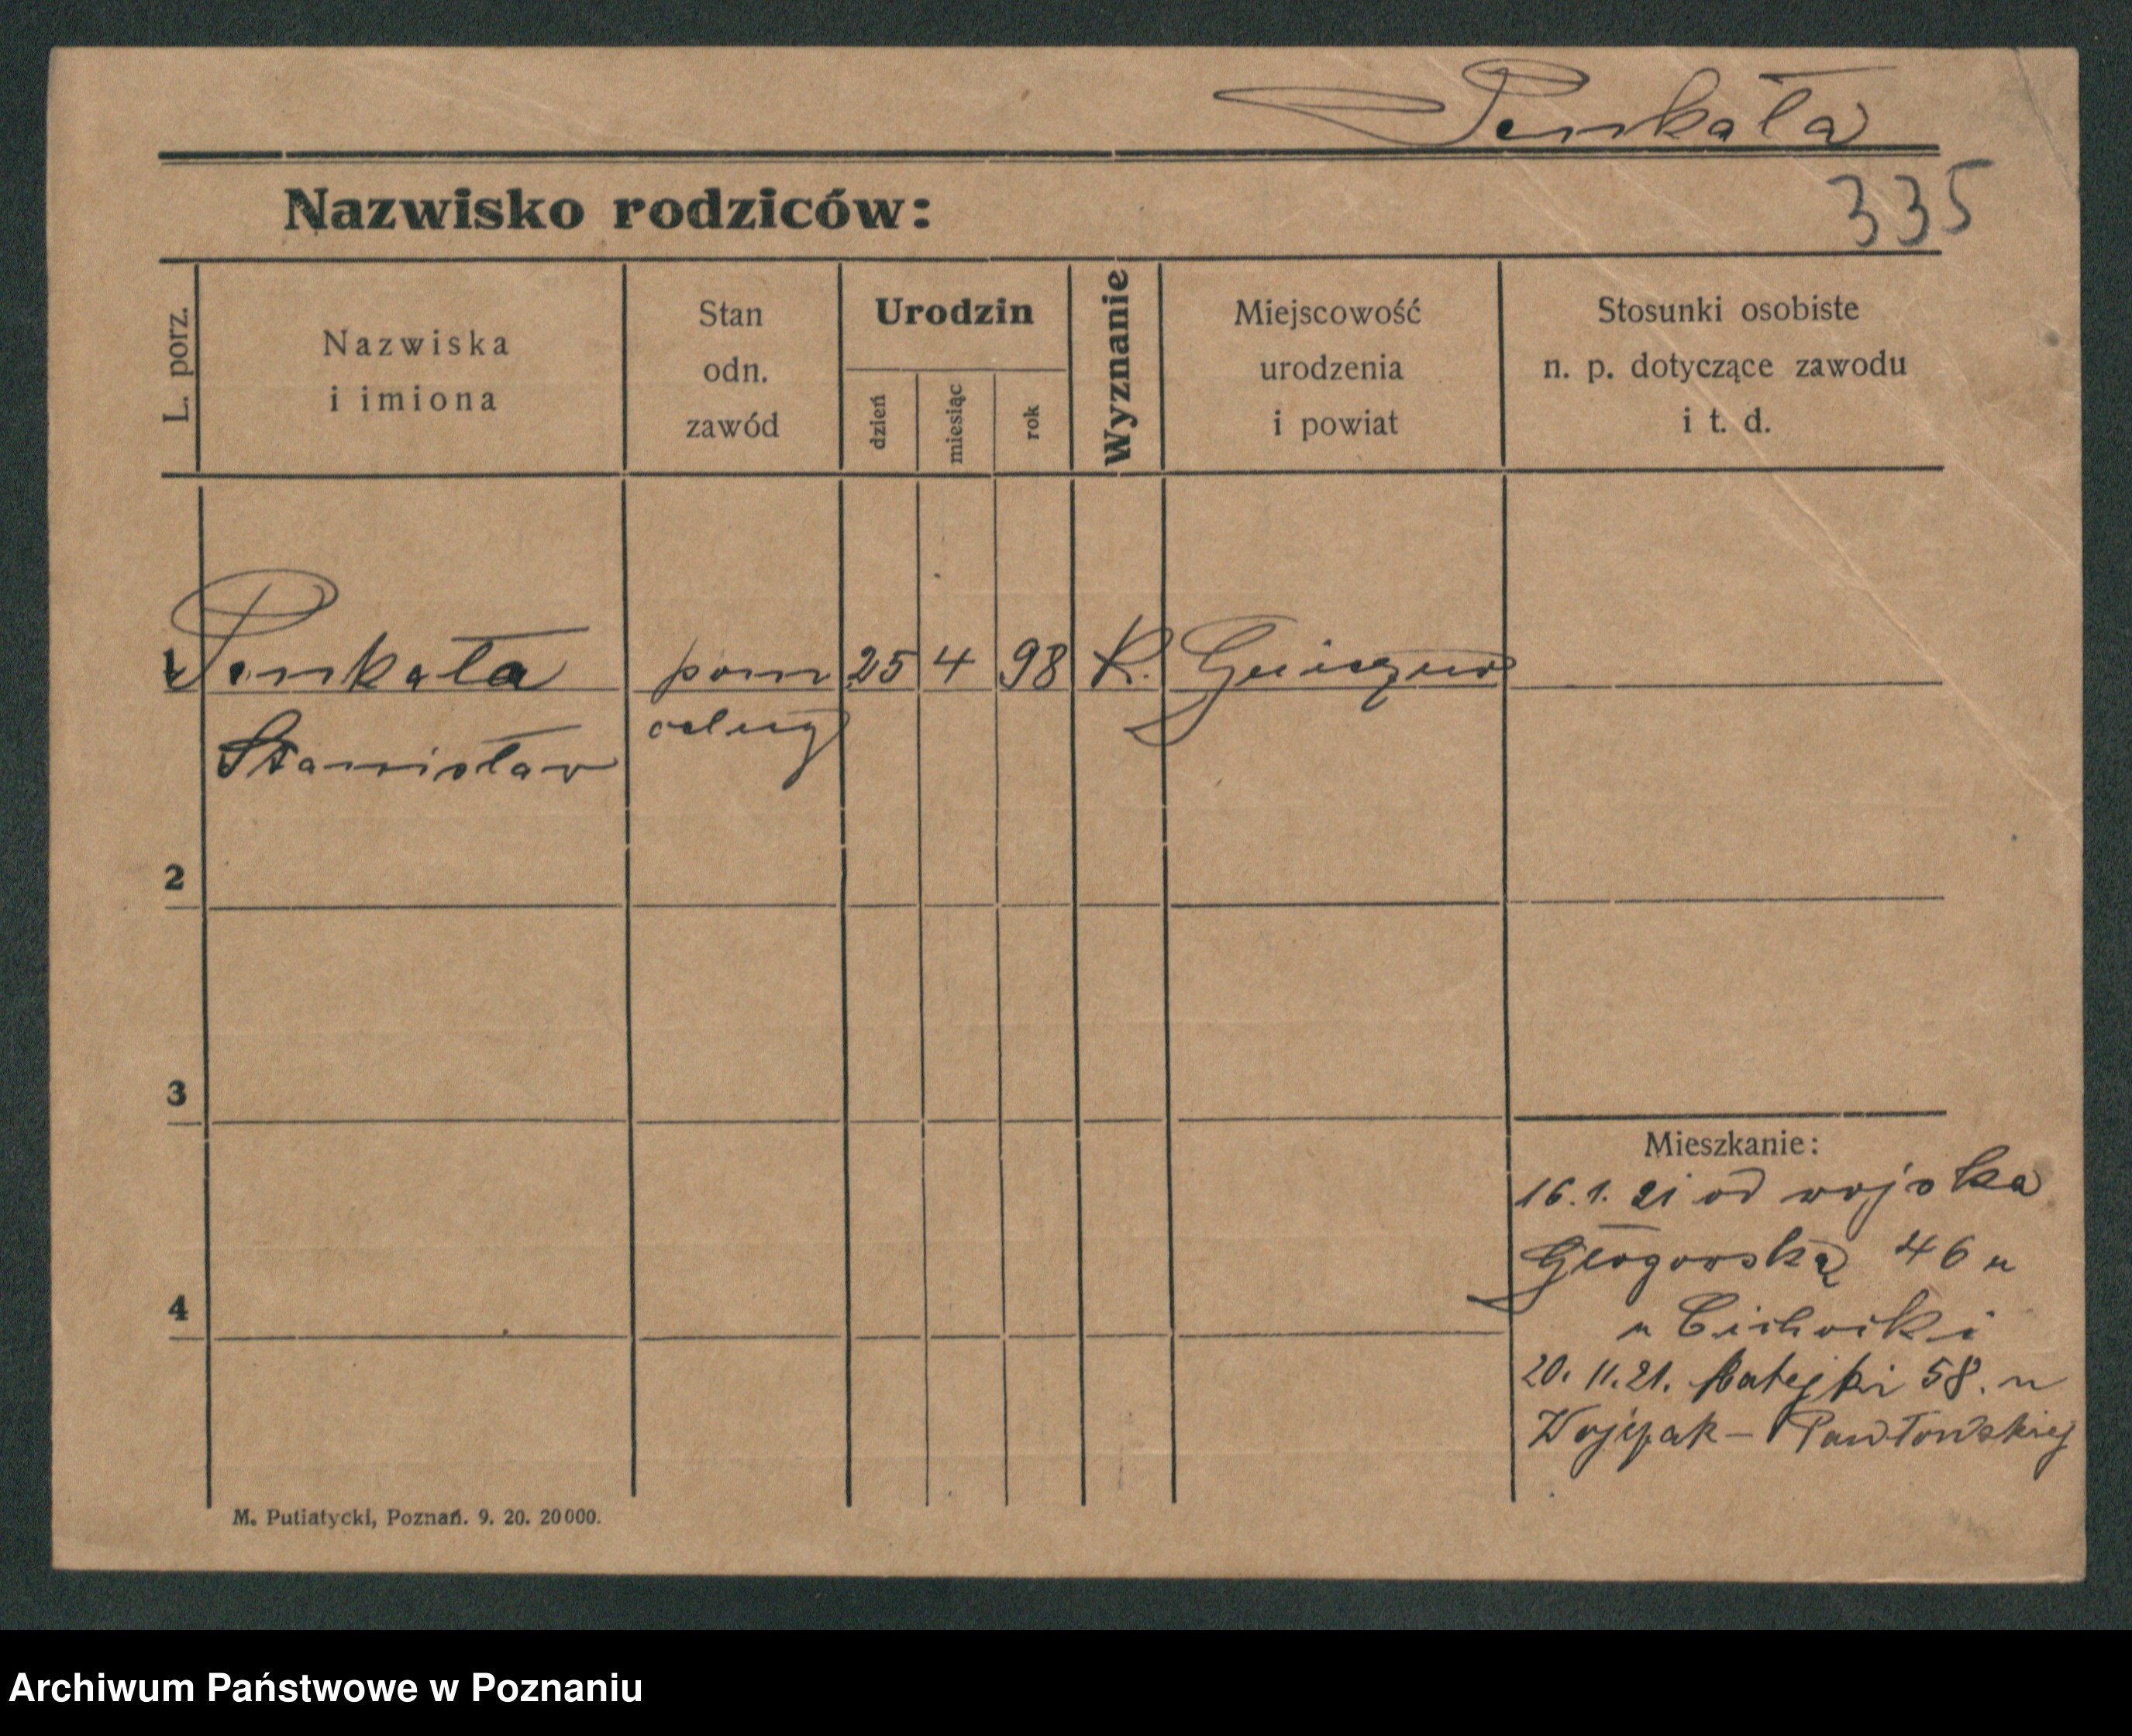 Penkała
335
Nazwisko rodziców:
L. porz.
Nazwiska
i imiona
Stan
odn.
zawód
Urodzin
dzień
miesiąc
rok
Wyznanie
Miejscowość
urodzenia
i powiat
Stosunki osobiste
n. p. dotyczące zawodu
i t. d.
1 Penkała pom 25 4 98 K.
Stanisław
2
3
4
Mieszkanie:
16.1.21 od wojska
Głogowską 46 u
u Cichocki
20. 11.21. 58. u
Wojczak - Pawłowskiej
M. Putiatycki, Poznań. 9. 20. 20000.
Archiwum Państwowe w Poznaniu